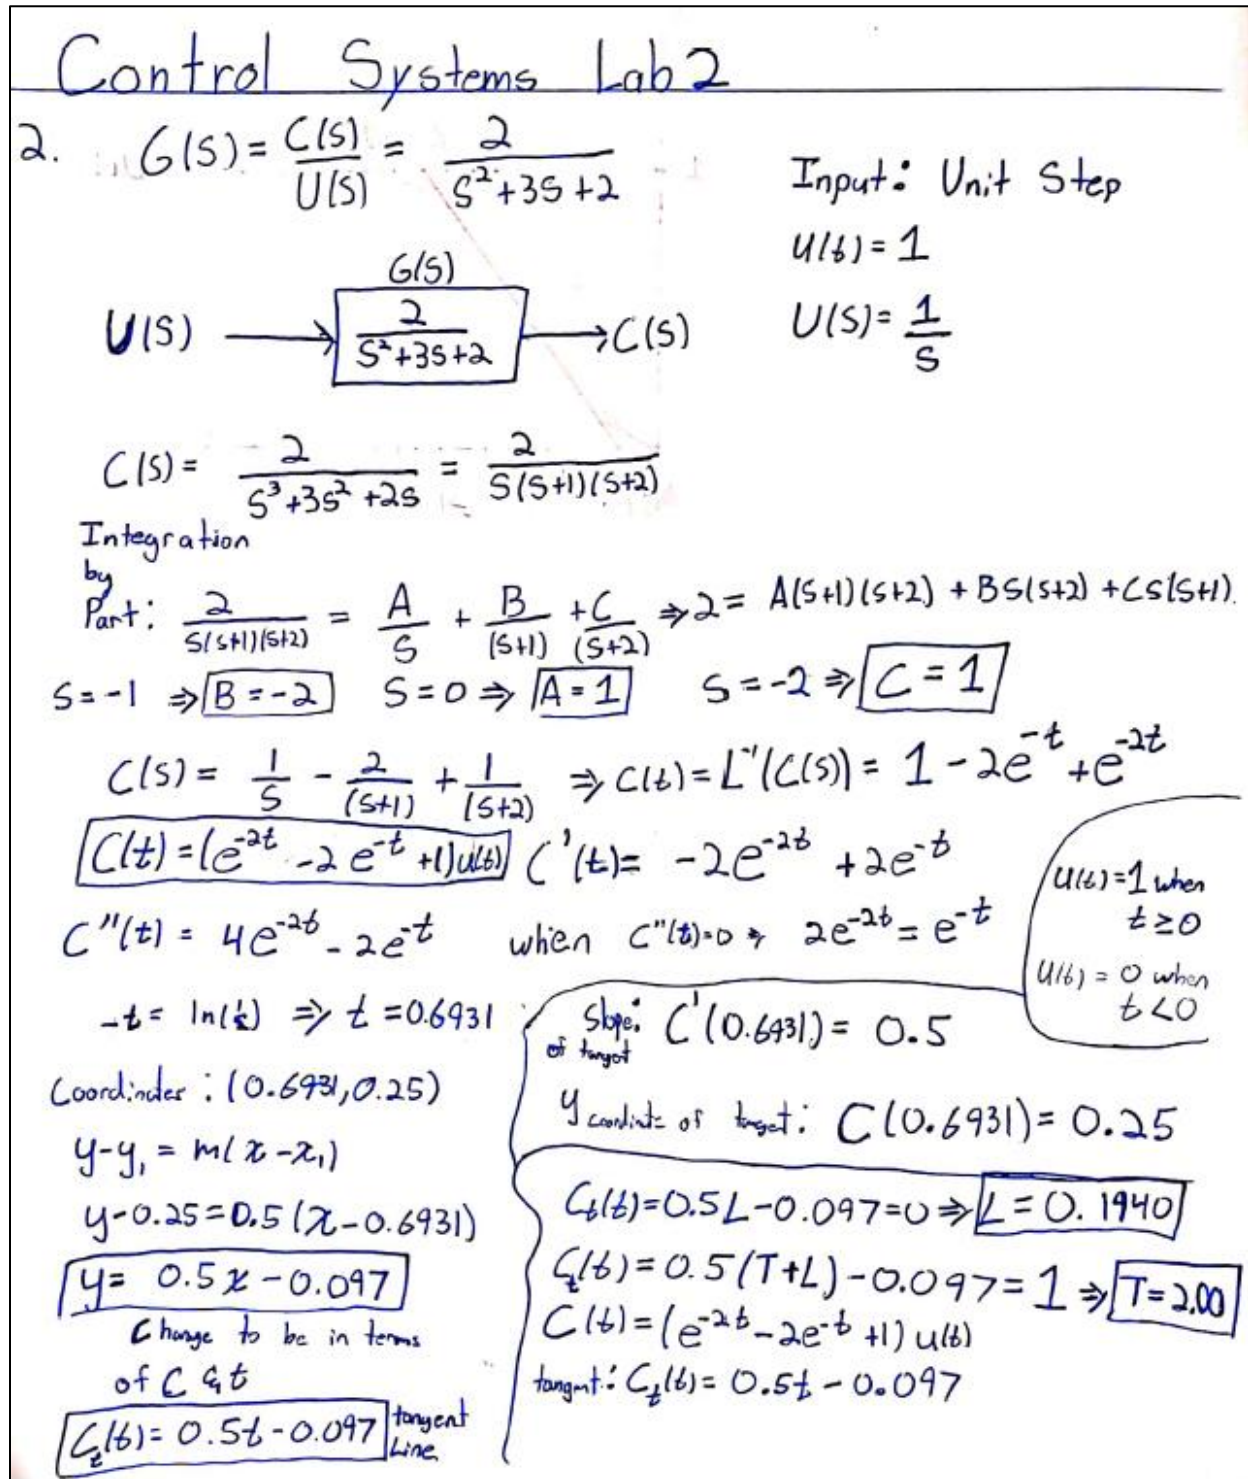 Control Systems Lab 2
2. G(S) = C(S)/U(S) = 2/(S²+3S+2)
Input: Unit Step
U(t) = 1
U(S) = 1/S
G(S)
U(S) → 2/(S²+3S+2) → C(S)
C(S) = 2/(S³+3S²+2S) = 2/(S(S+1)(S+2))
Integration
by
Part: 2/(S(S+1)(S+2)) = A/S + B/(S+1) + C/(S+2) ⇒ 2 = A(S+1)(S+2) + BS(S+2) + CS(S+1)
S = -1 ⇒ B = -2 S = 0 ⇒ A = 1 S = -2 ⇒ C = 1
C(S) = 1/S - 2/(S+1) + 1/(S+2) ⇒ C(t) = L⁻¹(C(S)) = 1 - 2e^-t + e^-2t
C(t) = (e^-2t - 2e^-t + 1)u(t) C'(t) = -2e^-2t + 2e^-t
U(t) = 1 when
t ≥ 0
U(t) = 0 when
t < 0
C''(t) = 4e^-2t - 2e^-t when C''(t)=0 ⇒ 2e^-2t = e^-t
-t = ln(½) ⇒ t = 0.6931
Slope: C'(0.6931) = 0.5
of tangot
y coordinate of tanget: C(0.6931) = 0.25
Coordindes: (0.6931, 0.25)
y-y₁ = m(x-x₁)
y-0.25 = 0.5(x-0.6931)
y = 0.5x - 0.097
Change to be in terms
of C & t
C_t(t) = 0.5t - 0.097 tangent
Line
C_t(t) = 0.5L - 0.097 = 0 ⇒ L = 0.1940
C_t(t) = 0.5(T+L) - 0.097 = 1 ⇒ T = 2.00
C(t) = (e^-2t - 2e^-t + 1)u(t)
tangent: C_t(t) = 0.5t - 0.097